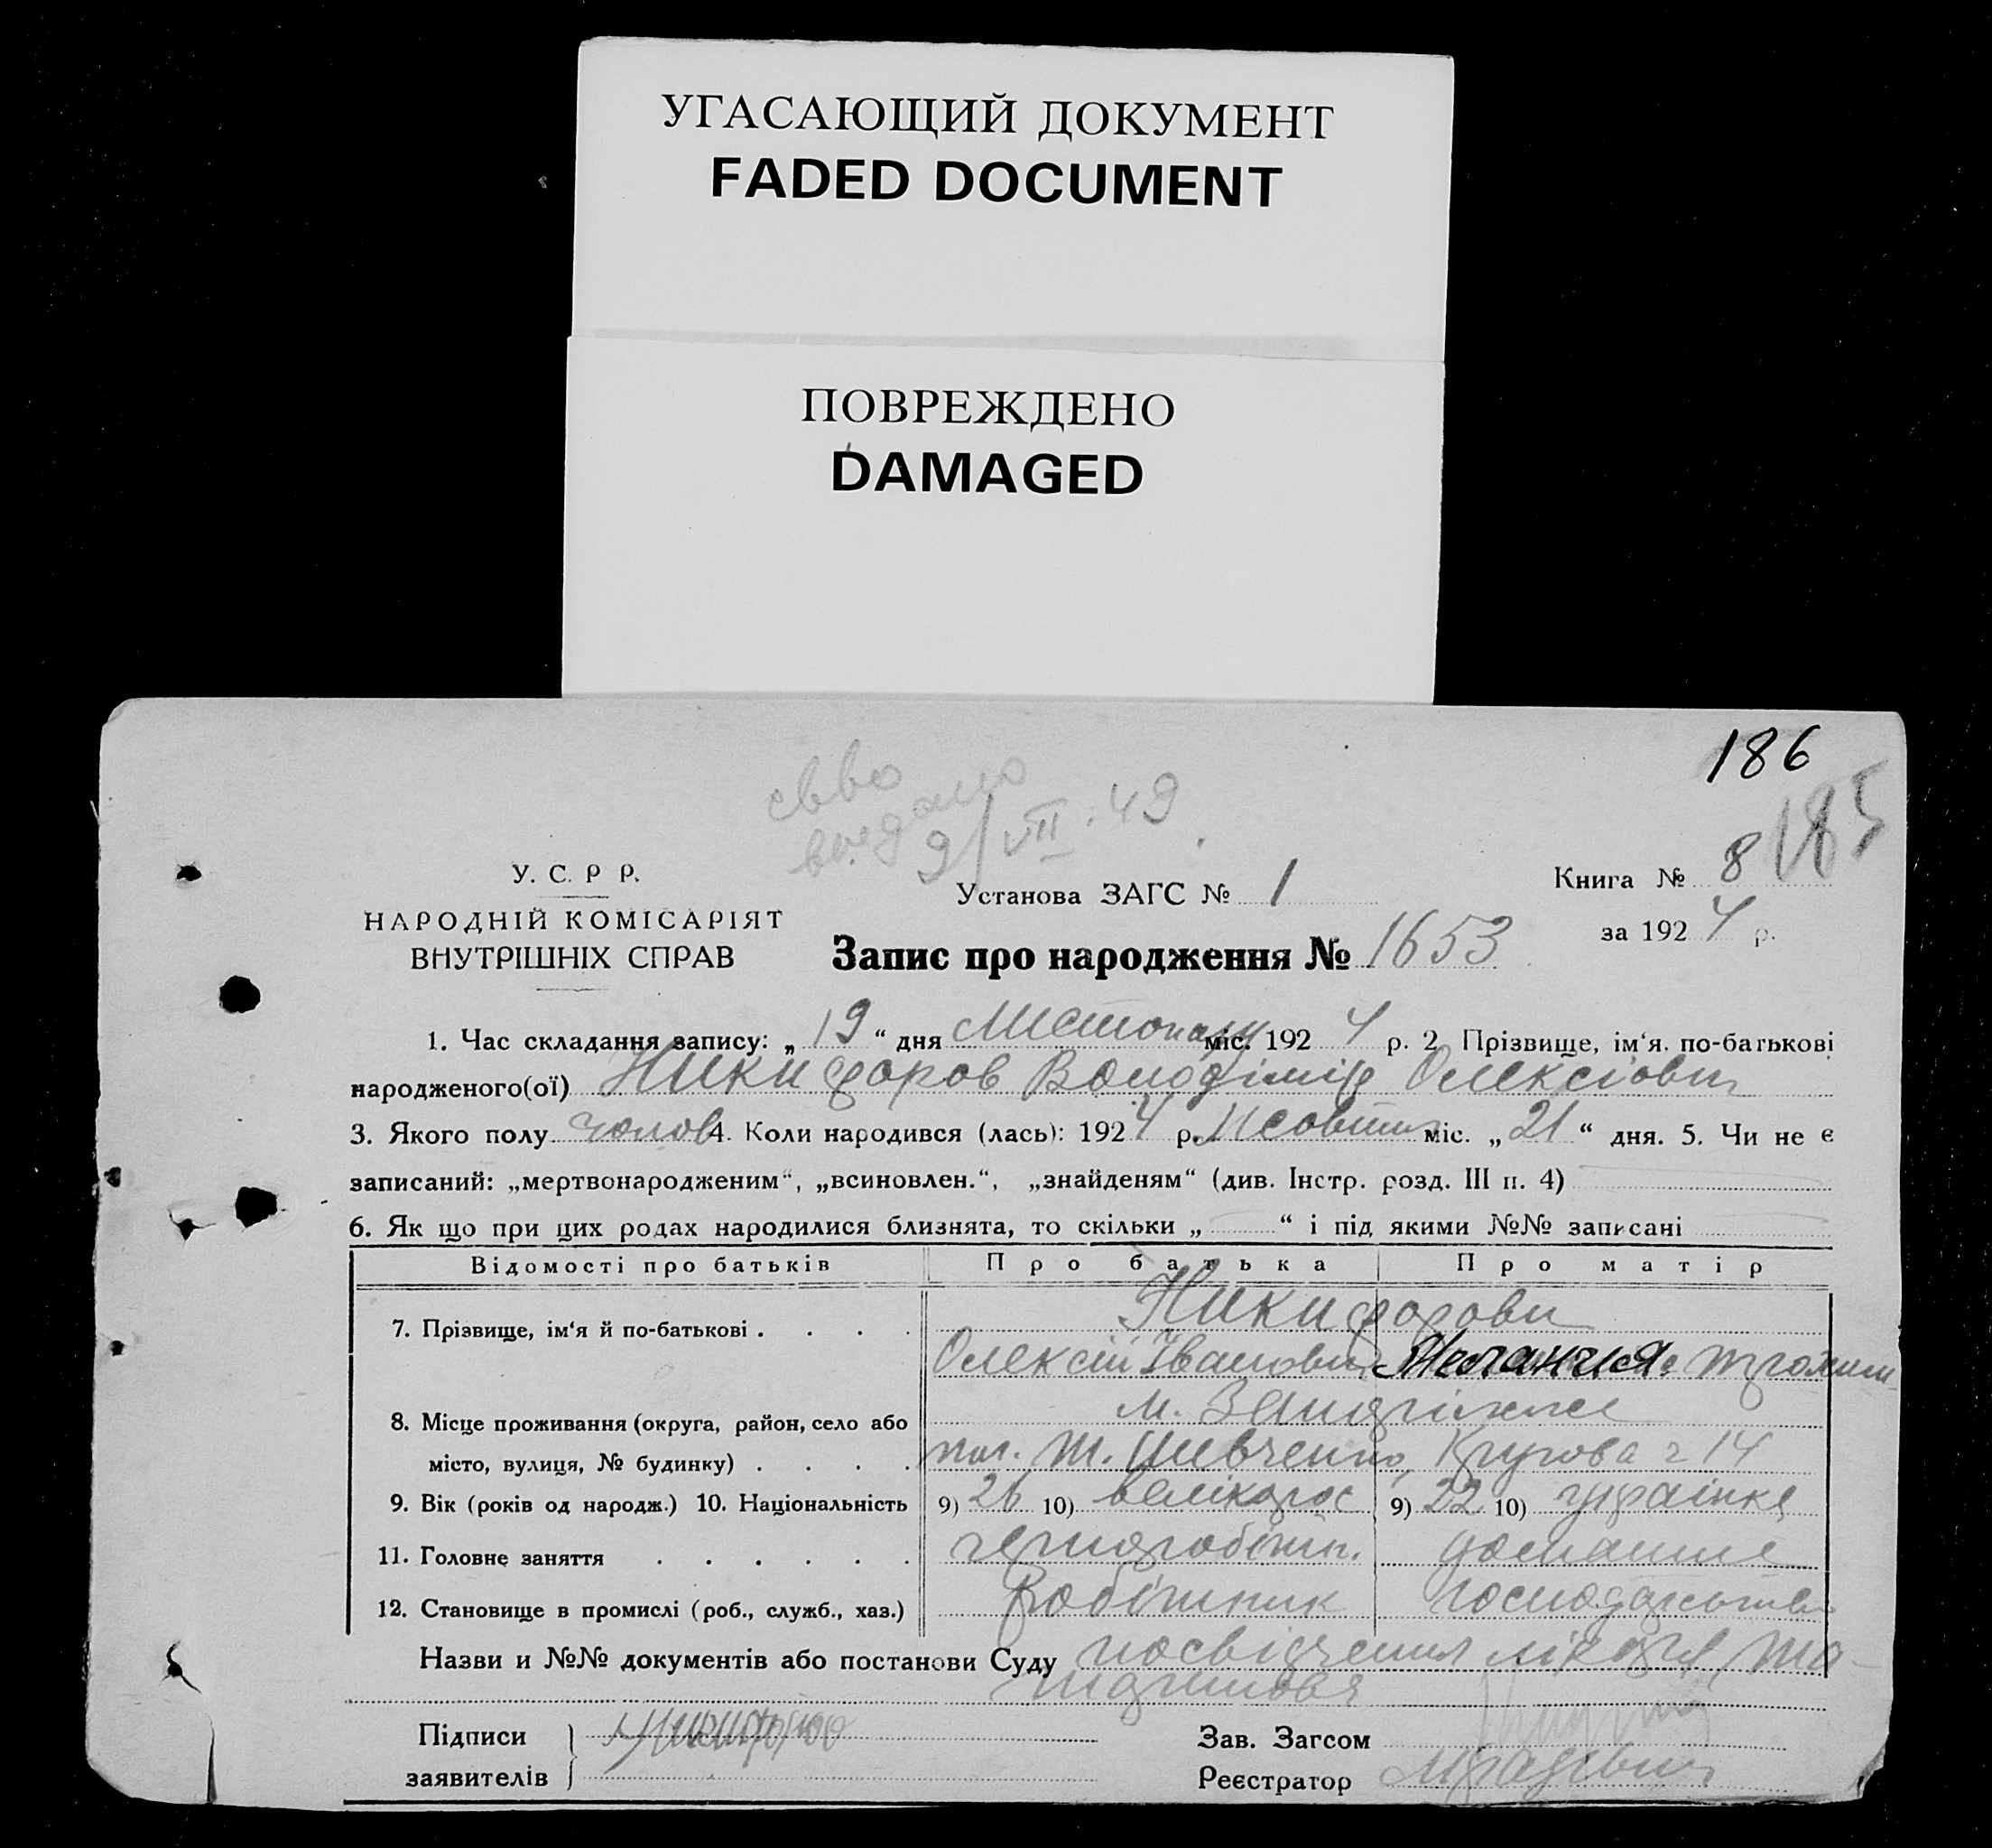 УГАСАЮЩИЙ ДОКУМЕНТ
FADED DOCUMENT
ПОВРЕЖДЕНО
DAMAGED
186
185
9/VII.49
У. С. Р Р.
НАРОДНІЙ КОМІСАРІЯТ
ВНУТРІШНІХ СПРАВ
Установа ЗАГС № 1
Книга № 8
за 1924 р.
Запис про народження № 1653
1. Час складання запису: „19“ дня Листопаду міс. 1924 р. 2 Прізвище, ім‘я. по-батькові
народженого(ої) Никифоров Володімір Олексіович
3. Якого полу чолов 4. Коли народився (лась): 1924 р. міс. „21“ дня. 5. Чи не є
записаний: „мертвонародженим“, „всиновлен.“, „знайденям“ (див. Інстр. розд. III п. 4)
6. Як що при цих родах народилися близнята, то скільки „ “ і під якими №№ записані
Відомості про батьків Про батька Про матір
7. Прізвище, ім‘я й по-батькові . . . . Никифорови
Олексій Іванович
8. Місце проживання (округа, район, село або м. Запоріжжє
місто, вулиця, № будинку) . . . . Шевченко, Кругова 14
9. Вік (років од народж.) 10. Національність 9) 26 10) велікорос 9) 22 10) українка
11. Головне заняття . . . . . . чернороб домашнє
12. Становище в промислі (роб., служб., хаз.) Робітник господарство
Назви и №№ документів або постанови Суду посвідчення лікаря та
Підписи
заявителів
Зав. Загсом
Реєстратор